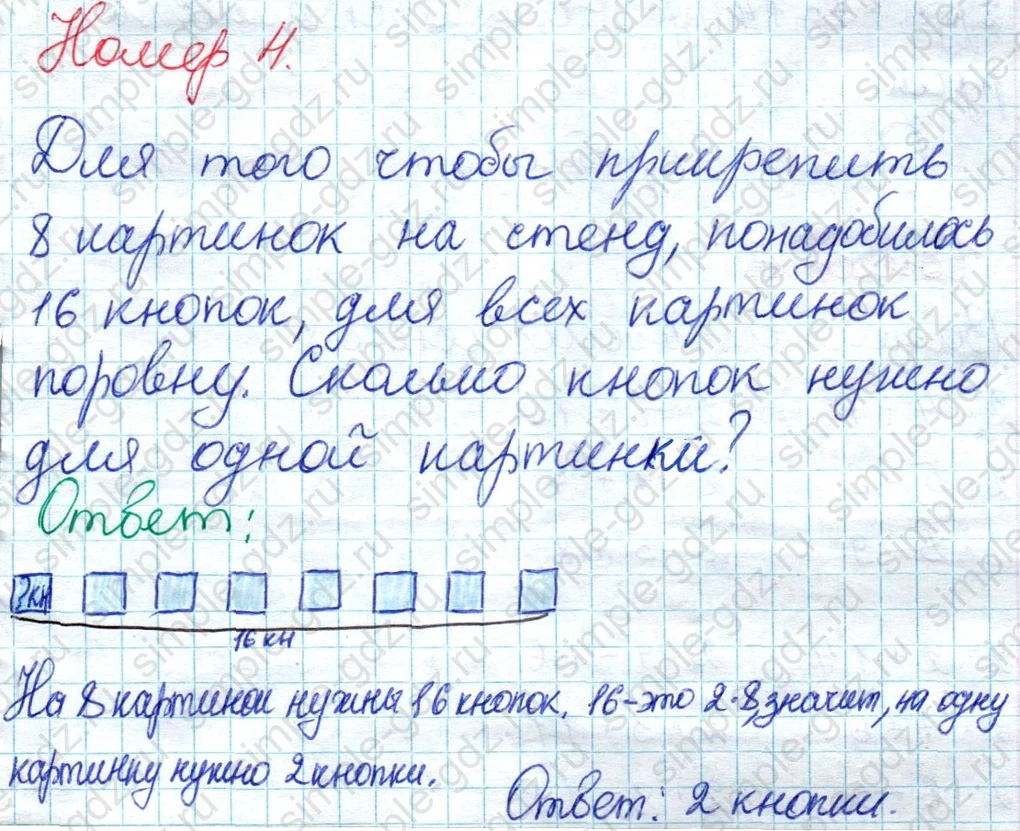 Номер 4.
Для того чтобы прикрепить
8 картинок на стенд, понадобилось
16 кнопок, для всех картинок
поровну. Сколько кнопок нужно
для одной картинки?
Ответ:
? кн
16 кн
На 8 картинок нужны 16 кнопок. 16-это 2·8, значит, на одну
картинку нужно 2 кнопки.
Ответ: 2 кнопки.
simple-gdz.ru